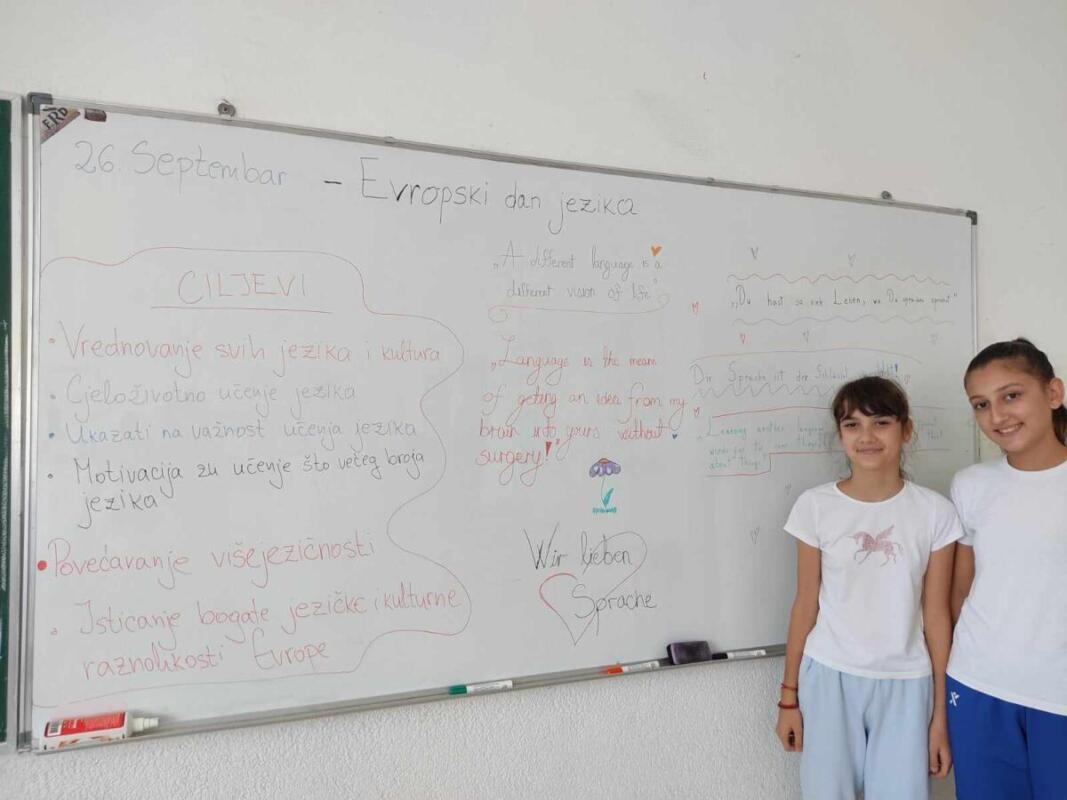 26. Septembar - Evropski dan jezika
CILJEVI
• Vrednovanje svih jezika i kultura
• Cjeloživotno učenje jezika
• Ukazati na važnost učenja jezika
• Motivacija za učenje što većeg broja
jezika
• Povećavanje višejezičnosti
• Isticanje bogate jezičke i kulturne
raznolikosti Evrope
„A different language is a
different vision of life"
„Language is the mean
of geting an idea from my
brain into yours without
surgery!"
Wir lieben
Sprache
„Du hast so viele Leben, wie Du sprachen sprichst"
Die Sprache ist der Schlüssel
„Learning another
about things